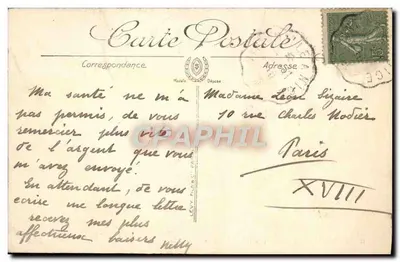 Carte Postale
Correspondance
Adresse
Ma santé ne m'a
pas permis, de vous
remercier plus vite
de l'argent que vous
m'avez envoyé.
En attendant, de vous
écrire une longue lettre
recevez mes plus
affectueux baisers Nelly
Madame Léon Sizaire
10 rue Charles Nodier
Paris
XVIII
CPAPHIL.com